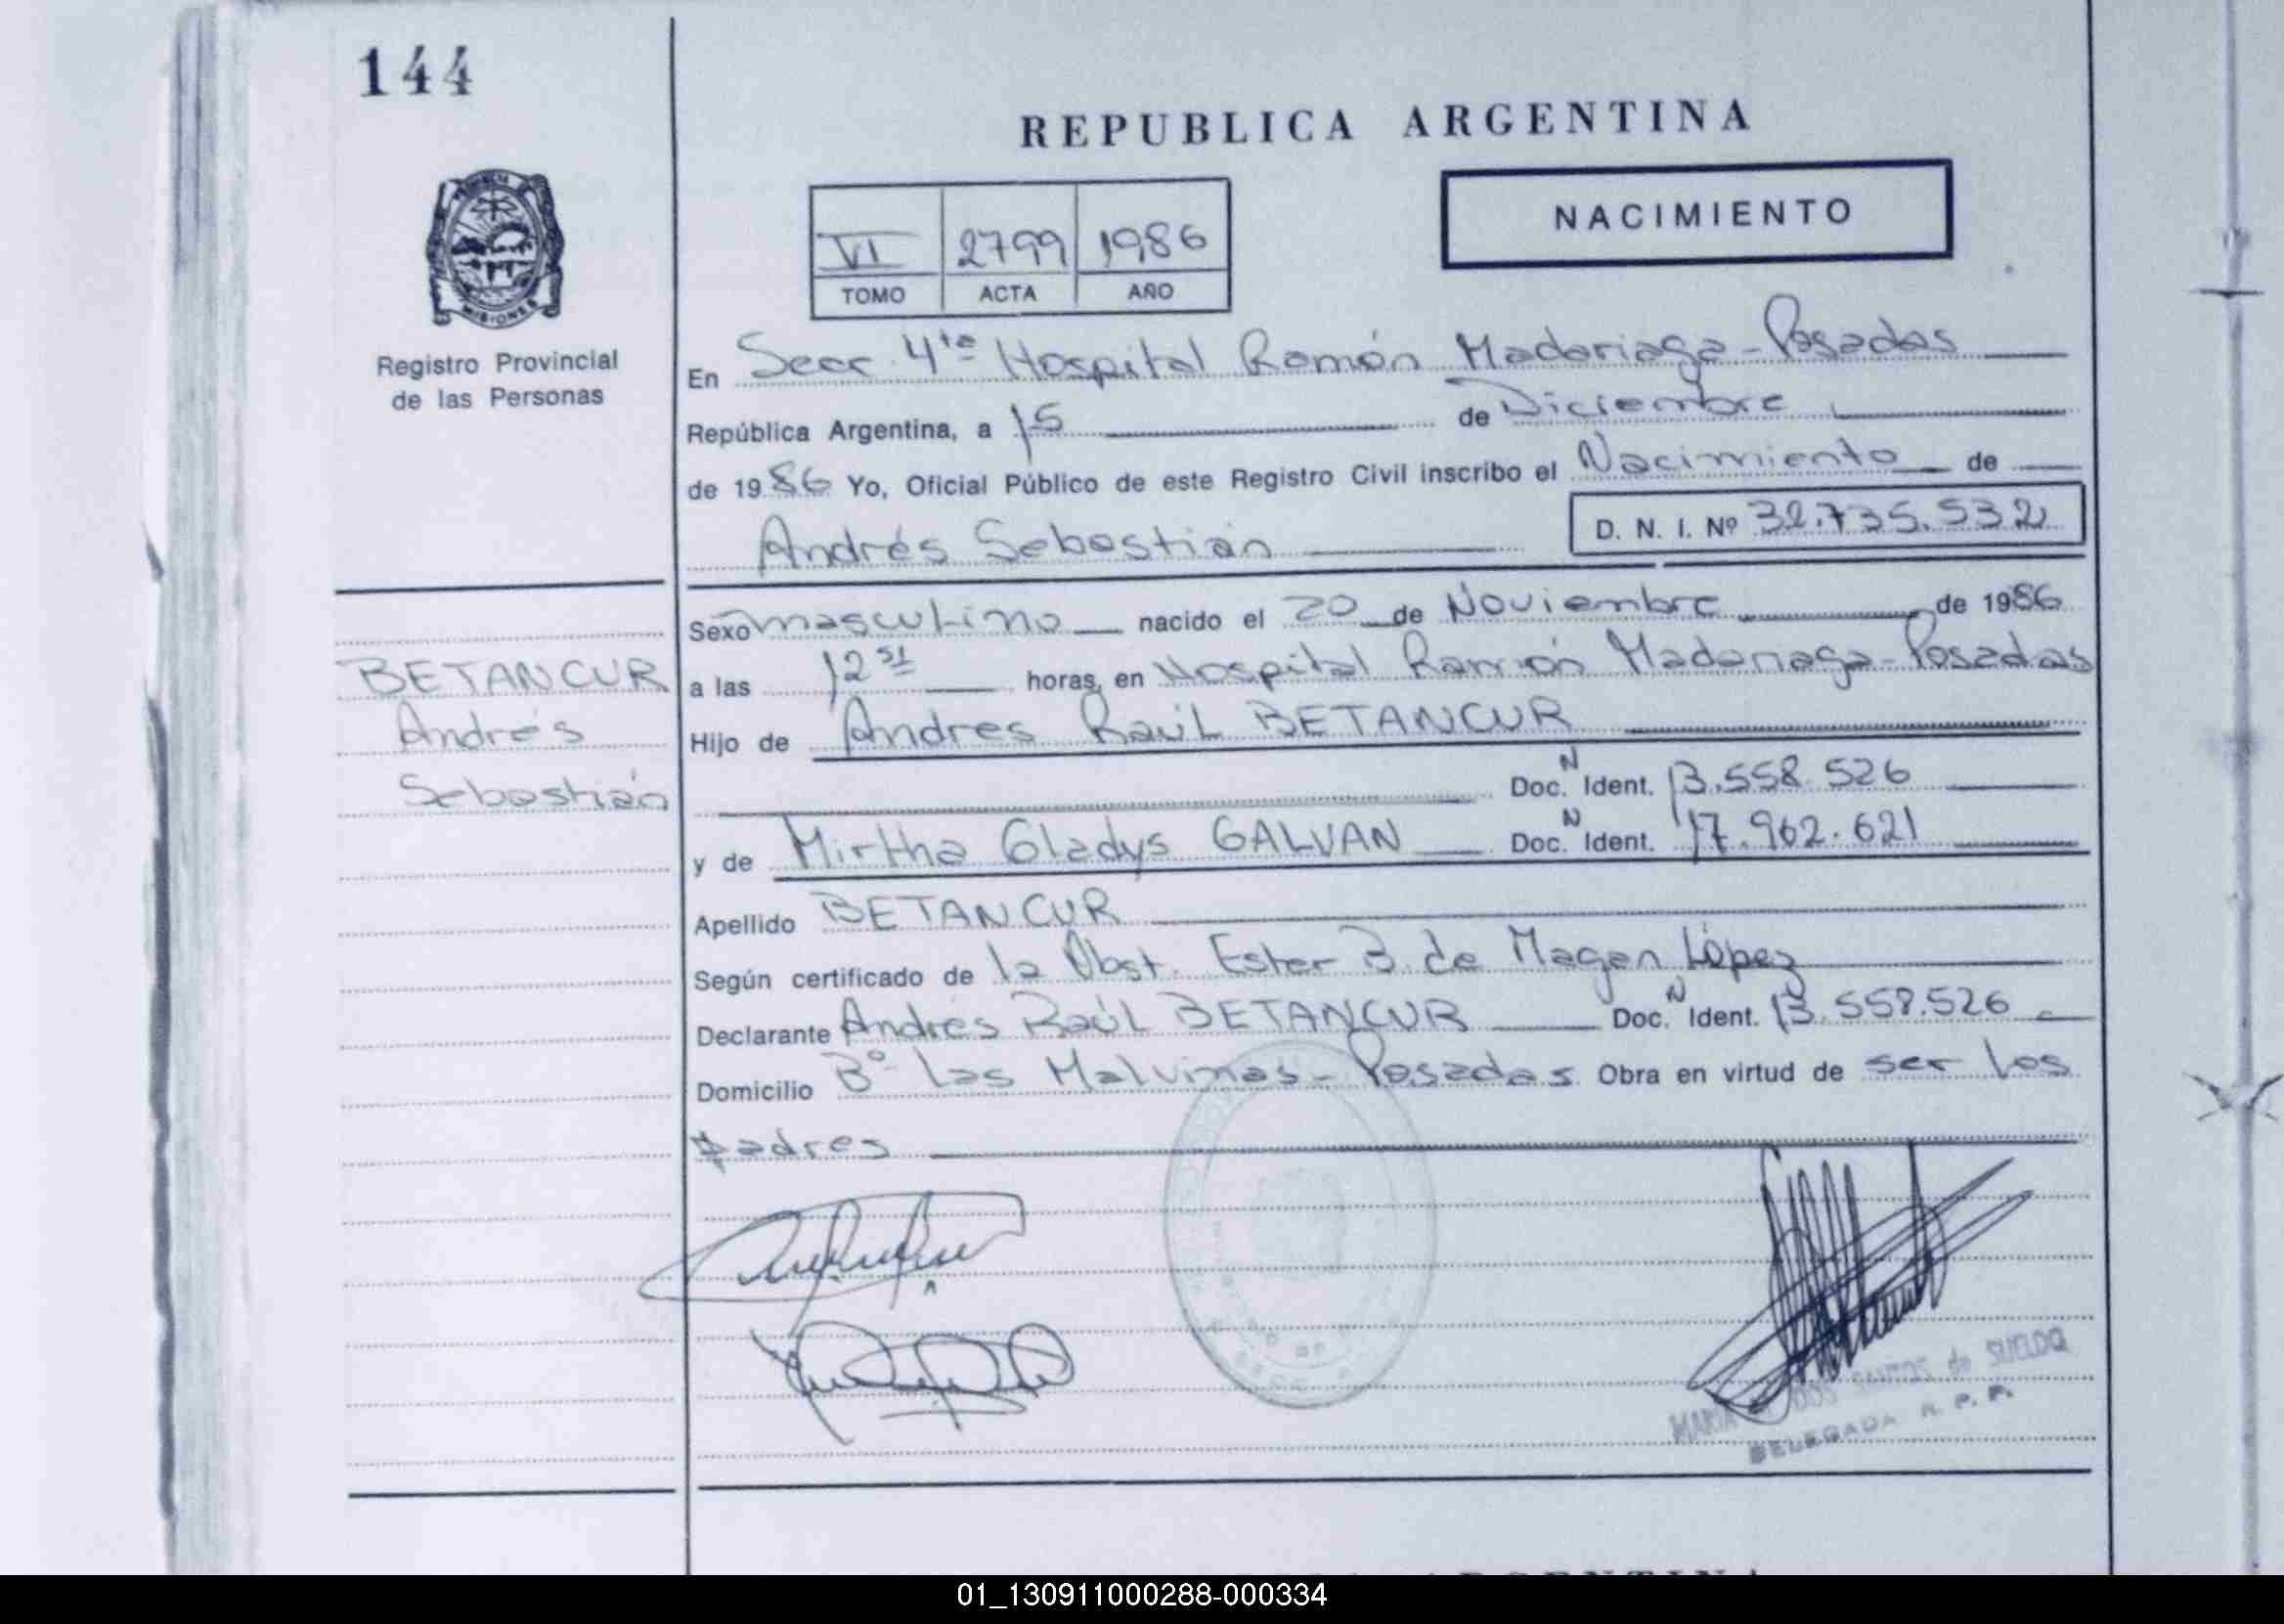 144
REPUBLICA ARGENTINA
NACIMIENTO
VI 2799 1986
TOMO ACTA AÑO
MISIONES
Registro Provincial
de las Personas
En Secc. 4ta Hospital Ramón Madariaga - Posadas
República Argentina, a 15 de Diciembre
de 1986 Yo, Oficial Público de este Registro Civil inscribo el Nacimiento de
Andrés Sebastián D. N. I. Nº 32.735.532
Sexo masculino nacido el 20 de Noviembre de 1986
BETANCUR
Andrés
Sebastián
a las 12 51 horas, en Hospital Ramón Madariaga - Posadas
Hijo de Andres Raúl BETANCUR
Doc. N Ident. 13.558.526
y de Mirtha Gladys GALVAN Doc. N Ident. 17.962.621
Apellido BETANCUR
Según certificado de la Obst. Ester B. de Magan López
Declarante Andrés Raúl BETANCUR Doc. N Ident. 13.558.526
Domicilio Bº Las Malvinas - Posadas Obra en virtud de ser los
padres
MARIA DOS SANTOS de SUELDO
DELEGADA R. P. P.
01_130911000288-000334